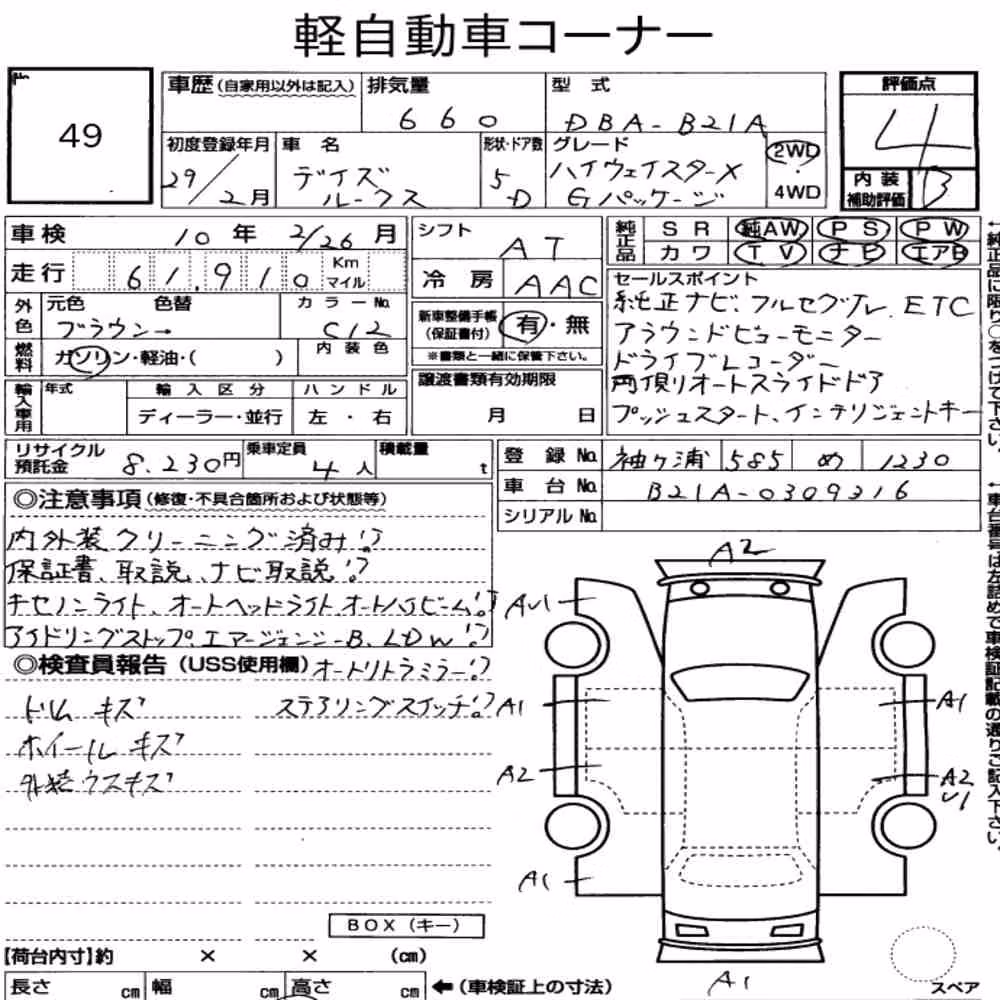 軽自動車コーナー
No. 49
車歴(自家用以外は記入) 排気量 660 型式 DBA-B21A
初度登録年月 29/2月 車名 デイズルークス 形状・ドア数 5D グレード ハイウェイスターX Gパッケージ 2WD・4WD
評価点 4
内装補助評価 B
車検 10年 2/26月
走行 61,910 Km マイル
外色 元色 ブラウン→ 色替 カラーNo. C12
燃料 ガソリン・軽油・( ) 内装色
輸入車用 年式 輸入区分 ディーラー・並行 ハンドル 左・右
シフト AT
冷房 AAC
新車整備手帳(保証書付) 有・無
※書類と一緒に保管下さい。
譲渡書類有効期限
月 日
純正品 SR 純AW PS PW
カワ TV ナビ エアB
セールスポイント
純正ナビ、フルセグTV、ETC
アラウンドビューモニター
ドライブレコーダー
両側リオートスライドドア
プッシュスタート、インテリジェントキー
←純正品に限り○をつけて下さい。
リサイクル預託金 8.230円 乗車定員 4人 積載量 t
登録No. 袖ヶ浦 585 め 1230
車台No. B21A-0309316
シリアルNo.
←車台番号は左詰めで車検証記載の通りご記入下さい。
◎注意事項(修復・不具合箇所および状態等)
内外装クリーニング済み!?
保証書、取説、ナビ取説!?
キセノンライト、オートヘッドライト オートハイビーム!?
アイドリングストップ、エマージェンシーB、LDW!?
◎検査員報告(USS使用欄) オートリトラミラー!?
ドリム キズ ステアリングスイッチ!?
ホイール キズ
外装ウスキズ
A2
AU1
A1 A1
A2 A2
U1
A1
A1
BOX(キー)
【荷台内寸】約 × × (cm)
長さ cm 幅 cm 高さ cm ←(車検証上の寸法)
スペア